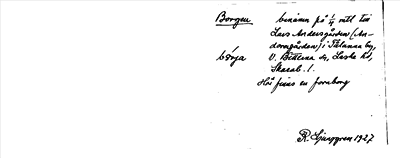 Borgen benämn på 1/4 mtl till
Lars Andersgården (An-
dersgården) i Tålanna by,
bórja V. Bitterna sn, Laske hd,
Skarab. l.
Här finns en fornborg
R. Ljunggren 1927